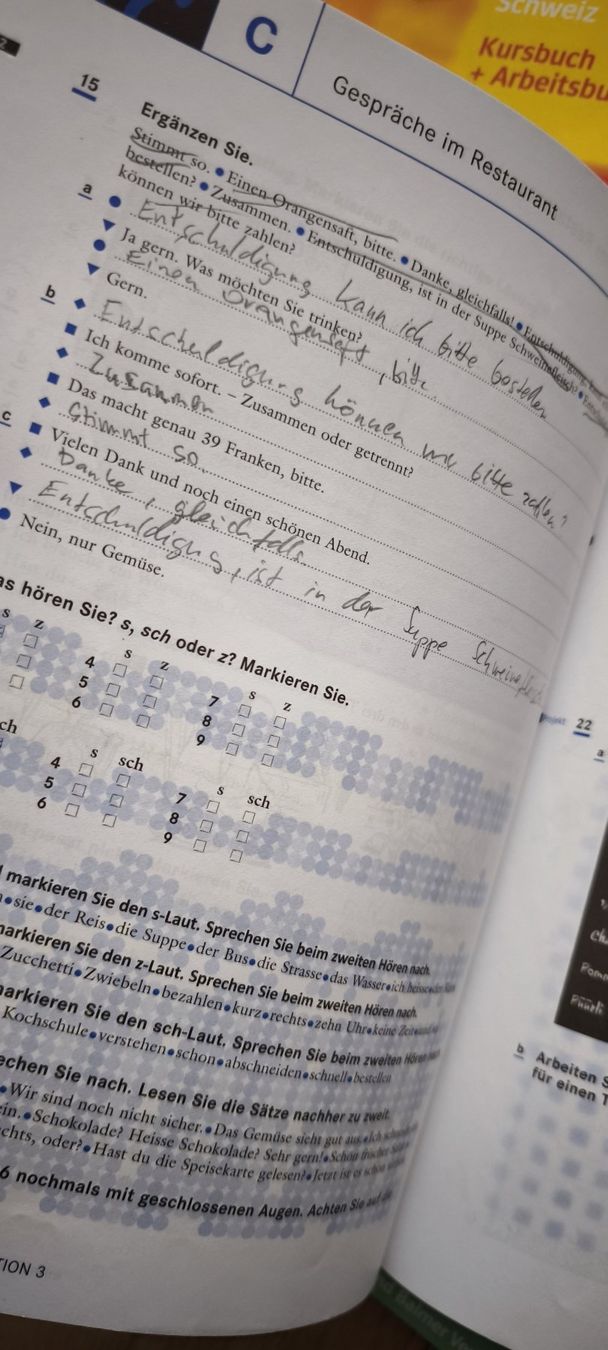 Schweiz
Kursbuch
+ Arbeitsbu
C
Gespräche im Restaurant
15
Ergänzen Sie.
Stimmt so. • Einen Orangensaft, bitte. • Danke, gleichfalls! • Entschuldigung,
bestellen? • Zusammen. • Entschuldigung, ist in der Suppe Schweinefleisch? •
können wir bitte zahlen?
a
Entschuldigung kann ich bitte bestellen
Ja gern. Was möchten Sie trinken?
Einen Orangensaft, bitte.
Gern.
b
Entschuldigung können wir bitte zallen?
Ich komme sofort. – Zusammen oder getrennt?
Zusammen
Das macht genau 39 Franken, bitte.
Stimmt so.
c
Vielen Dank und noch einen schönen Abend.
Danke, gleichfalls
Entschuldigung, ist in der Suppe Schweinefleisch
Nein, nur Gemüse.
as hören Sie? s, sch oder z? Markieren Sie.
s z s z s z
4 7
5 8
6 9
ch s sch s sch
4 7
5 8
6 9
markieren Sie den s-Laut. Sprechen Sie beim zweiten Hören nach.
• sie • der Reis • die Suppe • der Bus • die Strasse • das Wasser • ich heisse •
arkieren Sie den z-Laut. Sprechen Sie beim zweiten Hören nach.
Zucchetti • Zwiebeln • bezahlen • kurz • rechts • zehn Uhr • keine Zeit •
arkieren Sie den sch-Laut. Sprechen Sie beim zweiten Hören
Kochschule • verstehen • schon • abschneiden • schnell • bestellen
echen Sie nach. Lesen Sie die Sätze nachher zu zweit.
• Wir sind noch nicht sicher. • Das Gemüse sieht gut aus. • Ich
ein. • Schokolade? Heisse Schokolade? Sehr gern! • Schon
chts, oder? • Hast du die Speisekarte gelesen? • Jetzt ist es schon
6 nochmals mit geschlossenen Augen. Achten Sie auf
TION 3
22
a
b Arbeiten S
für einen T